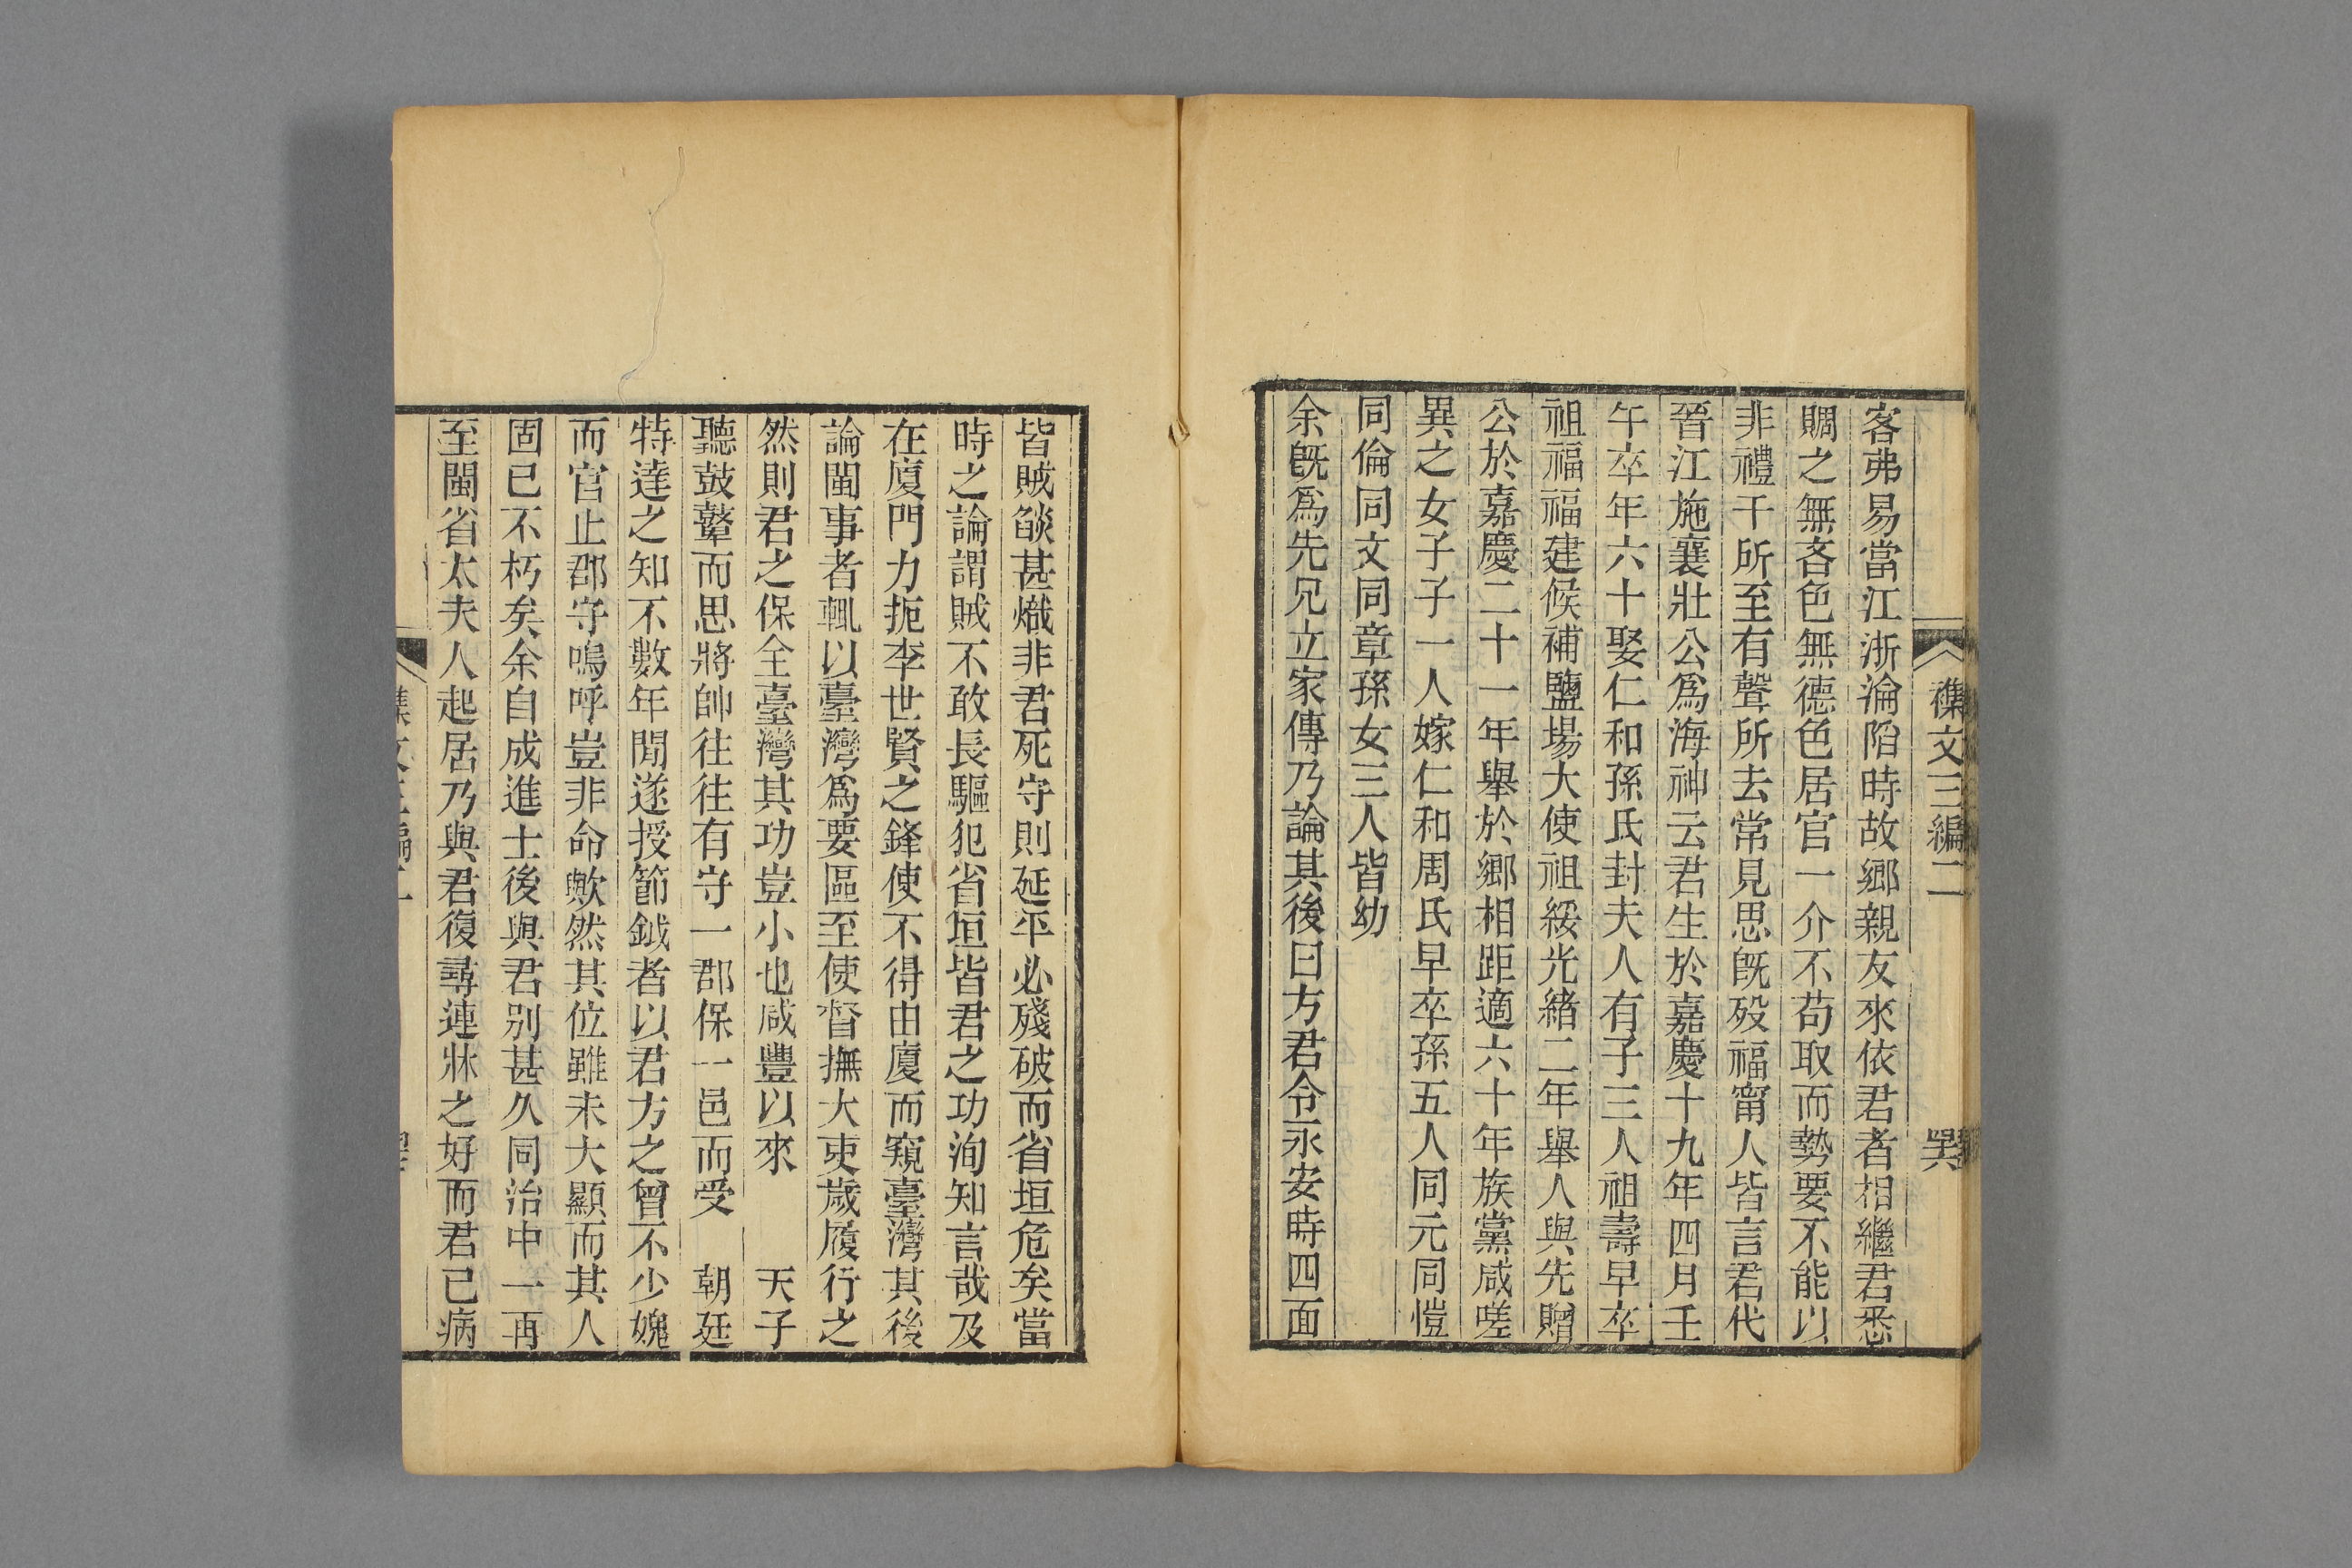 襍文三編二
客弗易當江浙淪陷時故鄉親友來依君者相繼君悉
賙之無吝色無德色居官一介不苟取而勢要不能以
非禮干所至有聲所去常見思旣歿福甯人皆言君代
晉江施襄壯公爲海神云君生於嘉慶十九年四月壬
午卒年六十娶仁和孫氏封夫人有子三人祖壽早卒
祖福福建候補鹽場大使祖綏光緒二年舉人與先贈
公於嘉慶二十一年舉於鄉相距適六十年族黨咸嗟
異之女子子一人嫁仁和周氏早卒孫五人同元同愷
同倫同文同章孫女三人皆幼
余旣爲先兄立家傳乃論其後曰方君令永安時四面
皆賊燄甚熾非君死守則延平必殘破而省垣危矣當
時之論謂賊不敢長驅犯省垣皆君之功洵知言哉及
在廈門力扼李世賢之鋒使不得由廈而窺臺灣其後
論閩事者輒以臺灣爲要區至使督撫大吏歲履行之
然則君之保全臺灣其功豈小也咸豐以來　天子
聽鼓鼙而思將帥往往有守一郡保一邑而受　朝廷
特達之知不數年閒遂授節鉞者以君方之曾不少媿
而官止郡守嗚呼豈非命歟然其位雖未大顯而其人
固已不朽矣余自成進士後與君別甚久同治中一再
至閩省太夫人起居乃與君復尋連牀之好而君已病